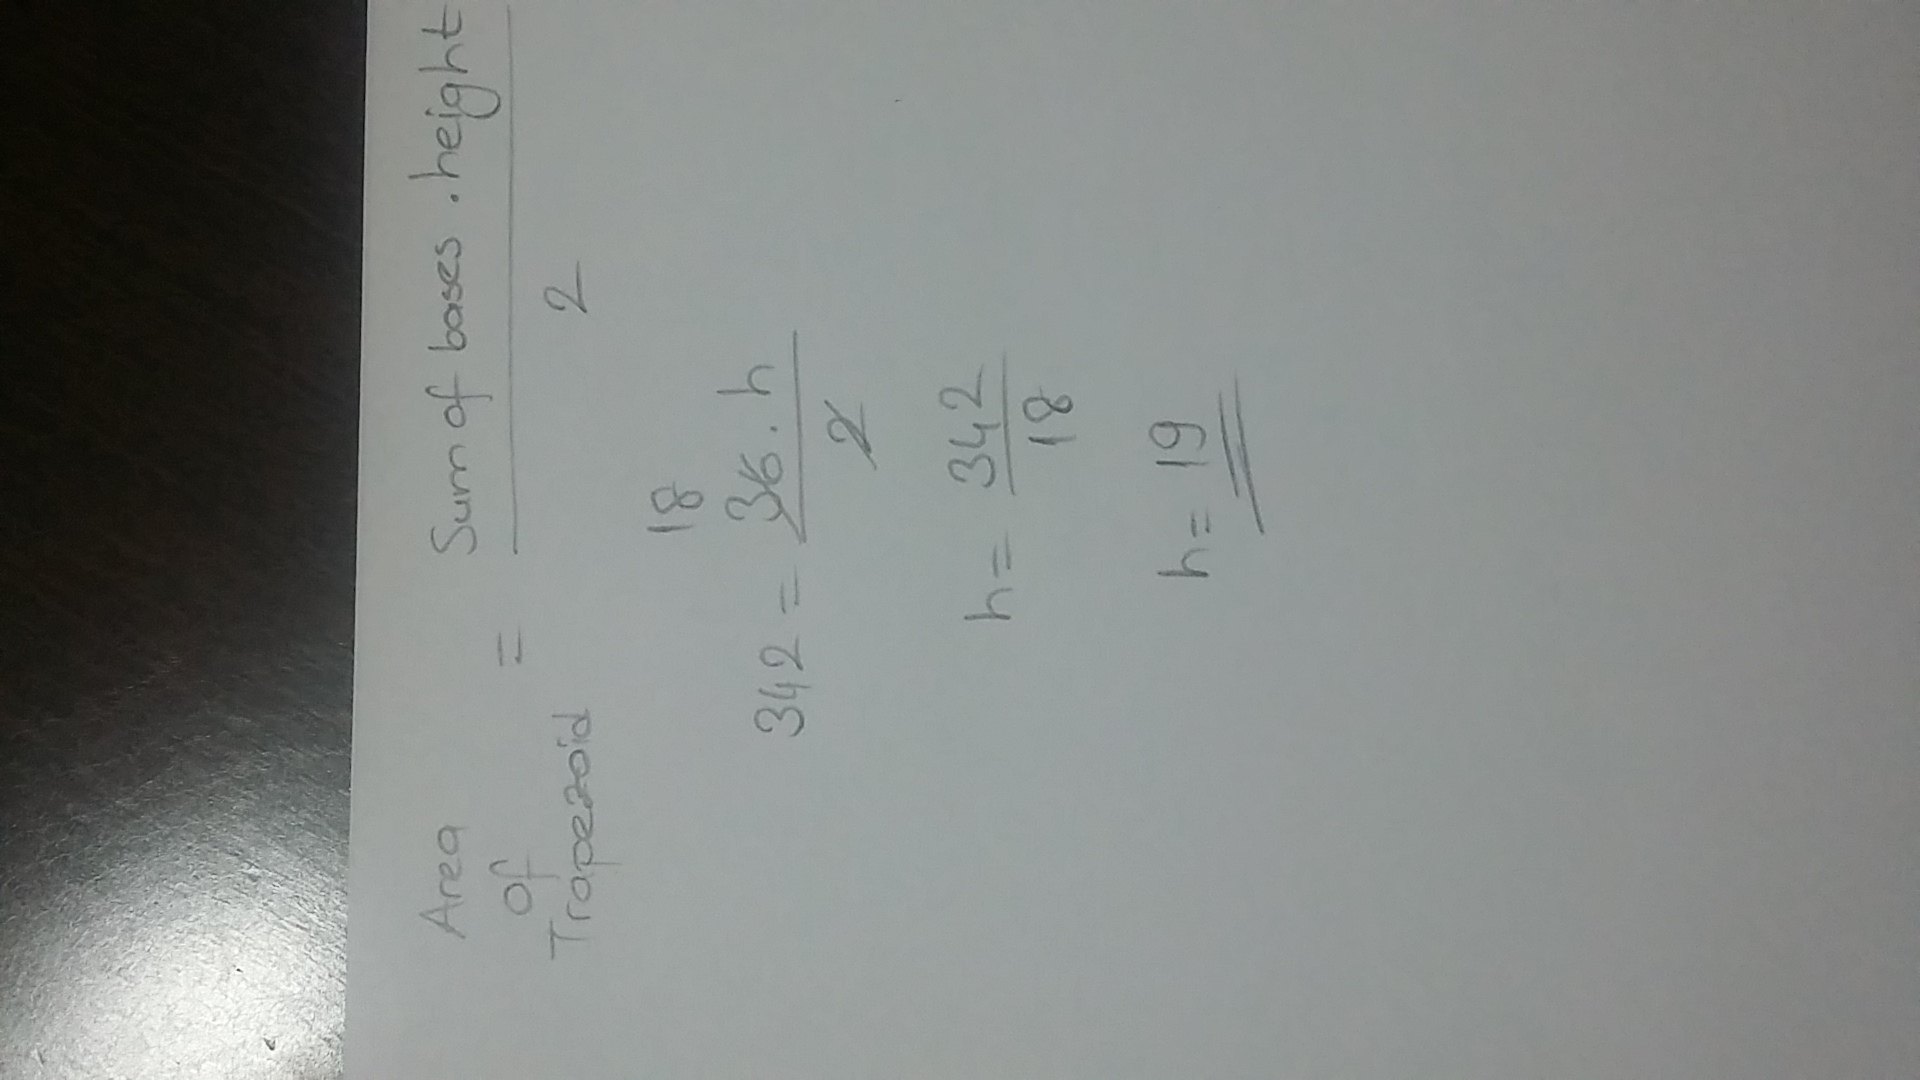 Area
of
Trapezoid
= Sum of bases . height
2
18
342 = 36 . h
2
h = 342
18
h = 19